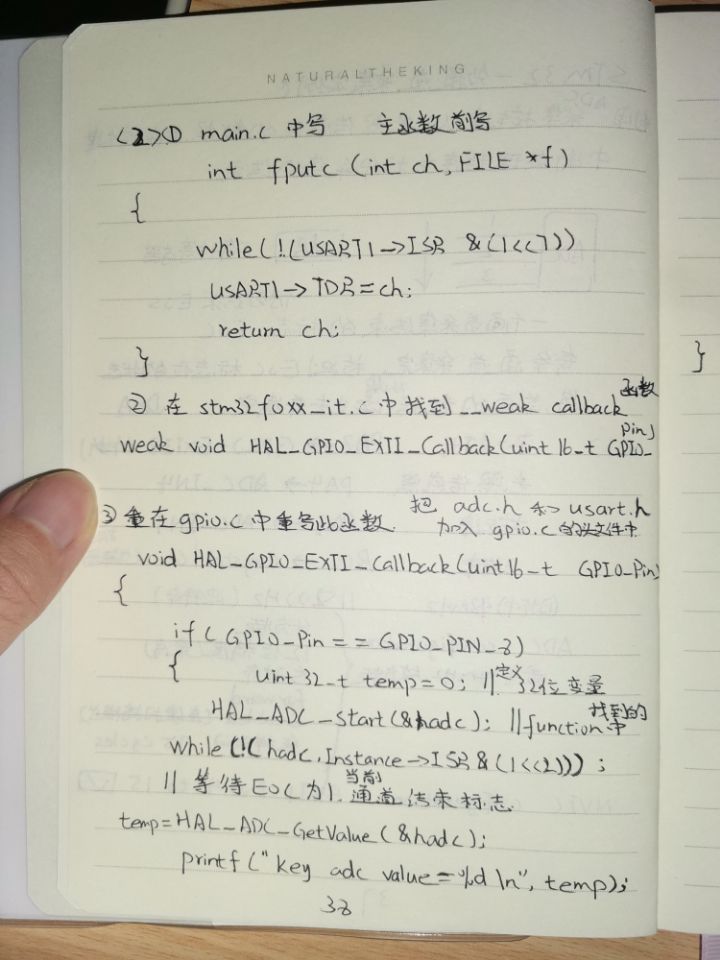 NATURALTHEKING
<2>① main.c 中写 主函数前写
int fputc (int ch, FILE *f)
{
while(!(USART1->ISR &(1<<7))
USART1->TDR=ch;
return ch;
}
② 在 stm32f0xx_it.c 中找到 __weak callback 函数
weak void HAL_GPIO_EXTI_Callback(uint16_t GPIO_Pin)
③ 重在gpio.c中重写此函数. 把 adc.h 和 usart.h
加入 gpio.c 的头文件中
void HAL_GPIO_EXTI_Callback(uint16_t GPIO_Pin)
{
if( GPIO_Pin == GPIO_PIN_8)
{ uint32_t temp=0; //定义32位变量
HAL_ADC_Start(&hadc); //function中找到的
while (!(hadc.Instance->ISR&(1<<2)));
// 等待EOC为1. 当前通道结束标志
temp=HAL_ADC_GetValue(&hadc);
printf("key adc value=%d \n", temp);
38
}